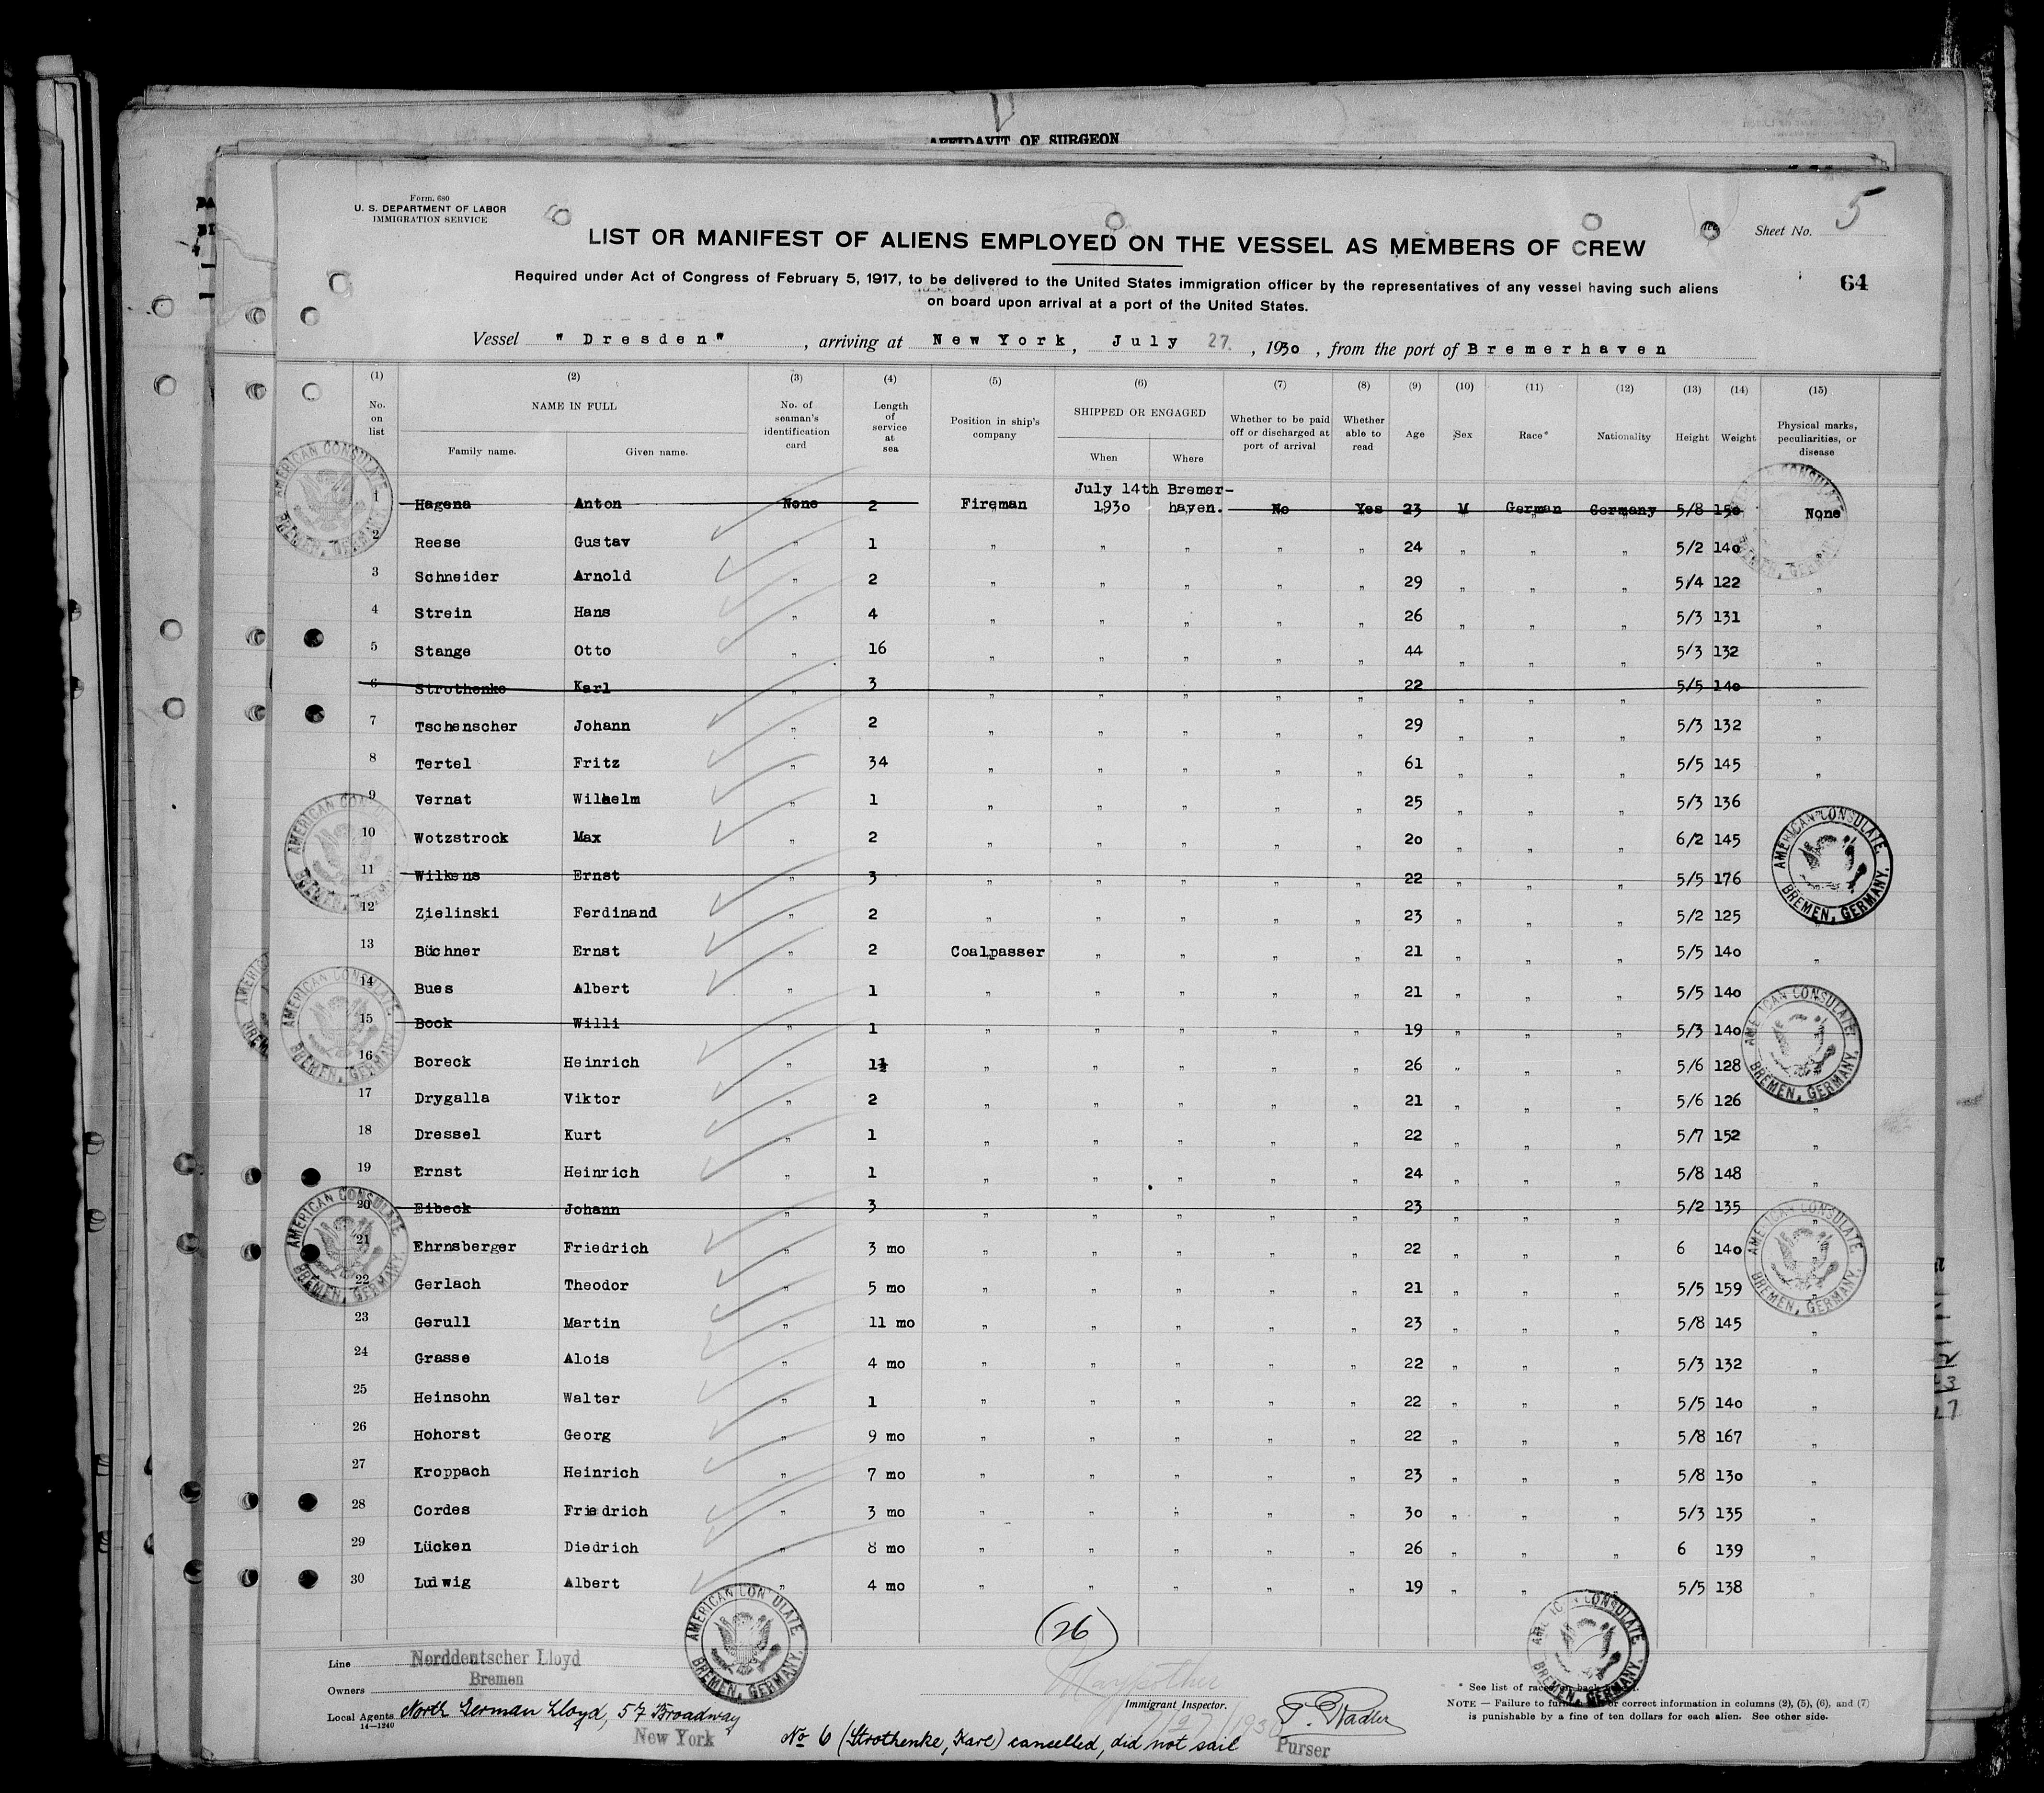 AFFIDAVIT OF SURGEON
Form. 680
U. S. DEPARTMENT OF LABOR
IMMIGRATION SERVICE
Sheet No. 5
LIST OR MANIFEST OF ALIENS EMPLOYED ON THE VESSEL AS MEMBERS OF CREW
Required under Act of Congress of February 5, 1917, to be delivered to the United States immigration officer by the representatives of any vessel having such aliens
on board upon arrival at a port of the United States.
64
Vessel "Dresden", arriving at New York, July 27., 1930, from the port of Bremerhaven
(1) (2) (3) (4) (5) (6) (7) (8) (9) (10) (11) (12) (13) (14) (15)
No. on list NAME IN FULL Family name. Given name. No. of seaman's identification card Length of service at sea Position in ship's company SHIPPED OR ENGAGED When Where Whether to be paid off or discharged at port of arrival Whether able to read Age Sex Race* Nationality Height Weight Physical marks, peculiarities, or disease
1 Hagena Anton None 2 Fireman July 14th 1930 Bremer-haven. No Yes 23 M German Germany 5/8 150 None
2 Reese Gustav " 1 " " " " " 24 " " " 5/2 140
3 Schneider Arnold " 2 " " " " " 29 " " " 5/4 122 "
4 Strein Hans " 4 " " " " " 26 " " " 5/3 131 "
5 Stange Otto " 16 " " " " " 44 " " " 5/3 132 "
6 Strothenke Karl " 3 " " " " " 22 " " " 5/5 140 "
7 Tschenscher Johann " 2 " " " " " 29 " " " 5/3 132 "
8 Tertel Fritz " 34 " " " " " 61 " " " 5/5 145 "
9 Vernat Wilhelm " 1 " " " " " 25 " " " 5/3 136
10 Wotzstrock Max " 2 " " " " " 20 " " " 6/2 145
11 Wilkens Ernst " 3 " " " " " 22 " " " 5/5 176
12 Zielinski Ferdinand " 2 " " " " " 23 " " " 5/2 125
13 Büchner Ernst " 2 Coalpasser " " " " 21 " " " 5/5 140 "
14 Bues Albert " 1 " " " " " 21 " " " 5/5 140
15 Bock Willi " 1 " " " " " 19 " " " 5/3 140
16 Boreck Heinrich " 1½ " " " " " 26 " " " 5/6 128
17 Drygalla Viktor " 2 " " " " " 21 " " " 5/6 126 "
18 Dressel Kurt " 1 " " " " " 22 " " " 5/7 152 "
19 Ernst Heinrich " 1 " " " " " 24 " " " 5/8 148 "
20 Eibeck Johann " 3 " " " " " 23 " " " 5/2 135 "
21 Ehrnsberger Friedrich " 3 mo " " " " " 22 " " " 6 140
22 Gerlach Theodor " 5 mo " " " " " 21 " " " 5/5 159 "
23 Gerull Martin " 11 mo " " " " " 23 " " " 5/8 145 "
24 Grasse Alois " 4 mo " " " " " 22 " " " 5/3 132 "
25 Heinsohn Walter " 1 " " " " " 22 " " " 5/5 140 "
26 Hohorst Georg " 9 mo " " " " " 22 " " " 5/8 167 "
27 Kroppach Heinrich " 7 mo " " " " " 23 " " " 5/8 130 "
28 Cordes Friedrich " 3 mo " " " " " 30 " " " 5/3 135 "
29 Lücken Diedrich " 8 mo " " " " " 26 " " " 6 139 "
30 Ludwig Albert " 4 mo " " " " " 19 " " " 5/5 138 "
AMERICAN CONSULATE, BREMEN, GERMANY.
AMERICAN CONSULATE, BREMEN, GERMANY.
AMERICAN CONSULATE, BREMEN, GERMANY.
AMERICAN CONSULATE, BREMEN, GERMANY.
AMERICAN CONSULATE, BREMEN, GERMANY.
AMERICAN CONSULATE, BREMEN, GERMANY.
AMERICAN CONSULATE, BREMEN, GERMANY.
AMERICAN CONSULATE, BREMEN, GERMANY.
AMERICAN CONSULATE, BREMEN, GERMANY.
AMERICAN CONSULATE, BREMEN, GERMANY.
(26)
Line Norddeutscher Lloyd
Bremen
Owners
Local Agents North German Lloyd, 57 Broadway
14—1240
New York
Immigrant Inspector.
1930
No 6 (Strothenke, Karl) cancelled, did not sail
Purser
* See list of races on back
NOTE — Failure to furnish or correct information in columns (2), (5), (6), and (7)
is punishable by a fine of ten dollars for each alien. See other side.